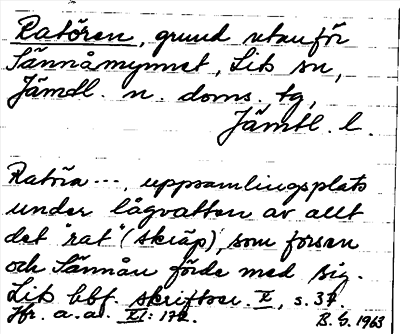 Ratören, grund utanför
Sännåmynnet, Lits sn,
Jämtl. n. doms. tg,
Jämtl. l.
Ratöra ---, uppsamlingsplats
under lågvatten av allt
det "rat" (skräp), som forsen
och Sännån förde med sig.
Lits hbf. skriftser. II, s. 37.
Jfr. a.a. XI: 172.
B. G. 1963